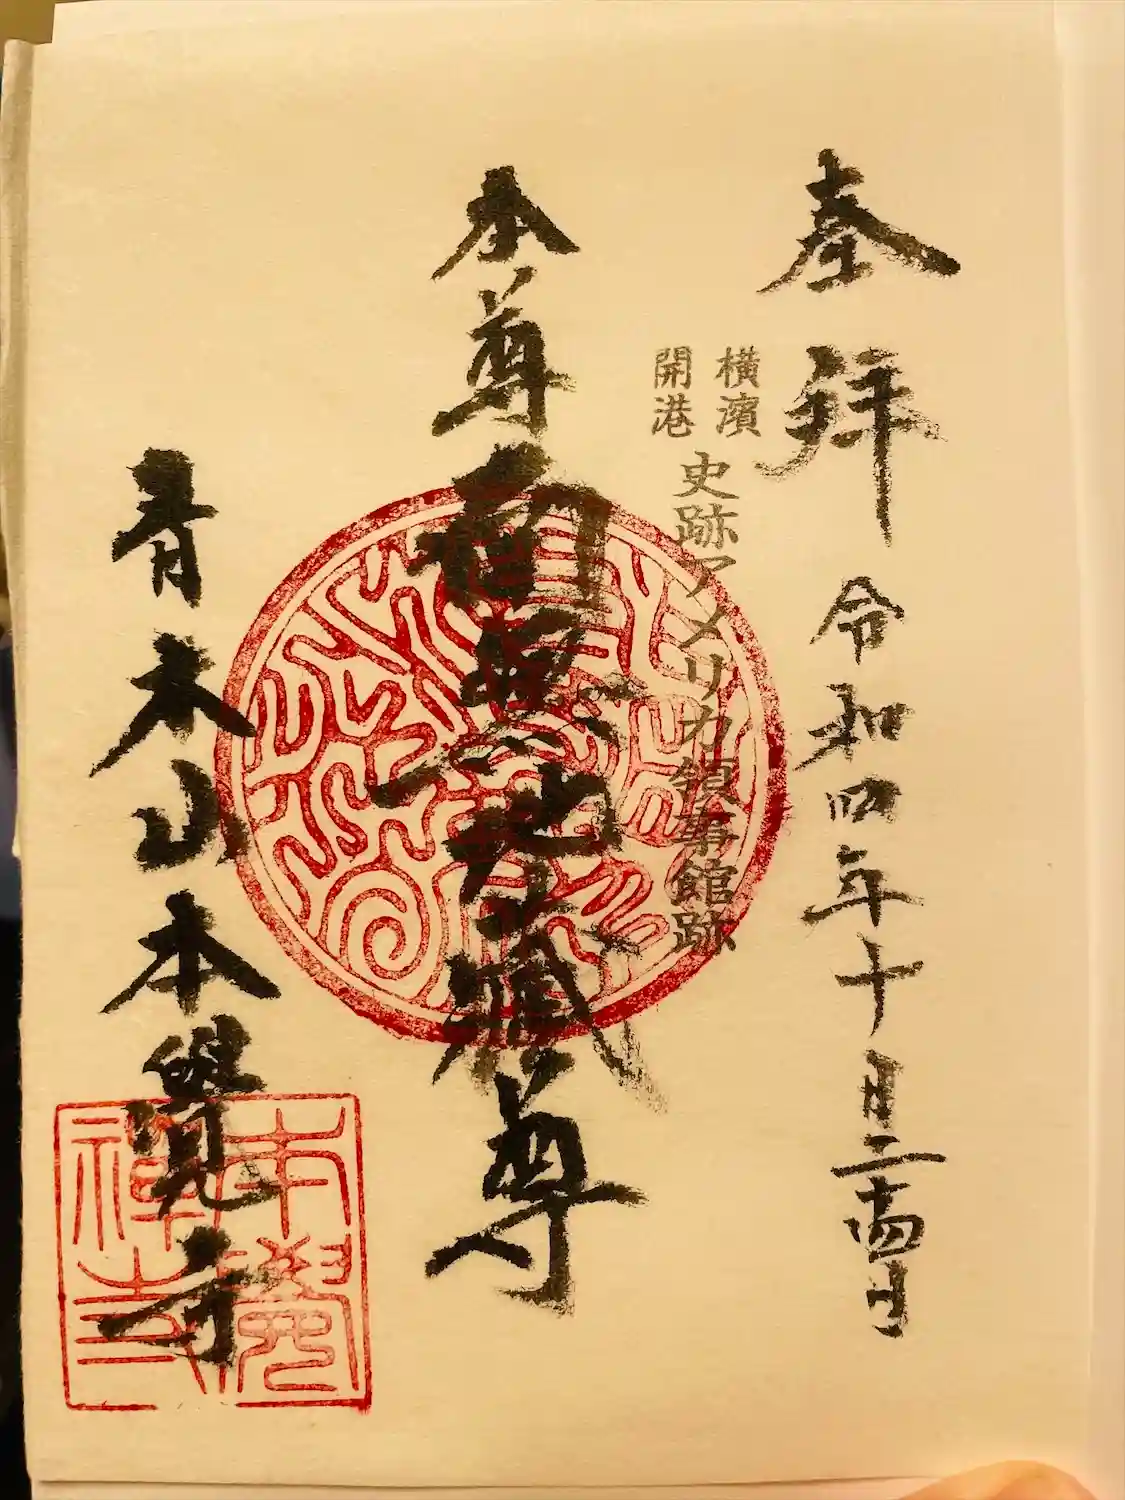 奉拝
令和四年十月二十四日
横濱
開港
史跡アメリカ領事館跡
本尊
南無地蔵尊
青木山本覺寺
本覺
禅寺